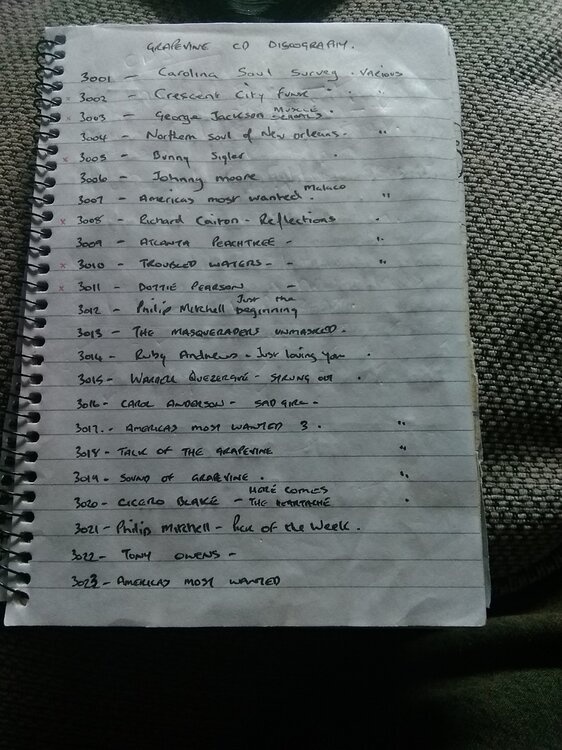 GRAPEVINE CD DISCOGRAPHY.
3001 - Carolina Soul Survey. Various
x 3002 - Crescent City Funk " "
x 3003 - George Jackson MUSCLE SCHOALS
3004 - Northern soul of New orleans. "
x 3005 - Bunny Sigler
3006 - Johnny moore
3007 - Americas most wanted. Malaco "
x 3008 - Richard Caiton - Reflections "
3009 - ATLANTA PEACHTREE - "
x 3010 - TROUBLED WATERS - - "
x 3011 - DOTTIE PEARSON -
3012 - Philip Mitchell Just the beginning
3013 - THE MASQUERADERS UNMASKED.
3014 - Ruby Andrews - Just loving you.
3015 - WARDELL QUEZERGUE - STRUNG OUT.
3016 - CAROL ANDERSON - SAD GIRL -
3017. - AMERICAS MOST WANTED 3. "
3018 - TALK OF THE GRAPEVINE "
3019 - SOUND OF GRAPEVINE. "
3020 - CICERO BLAKE - HERE COMES THE HEARTACHE "
3021 - Philip Mitchell - Pick of the week.
3022 - TONY OWENS -
3023 - AMERICAS MOST WANTED